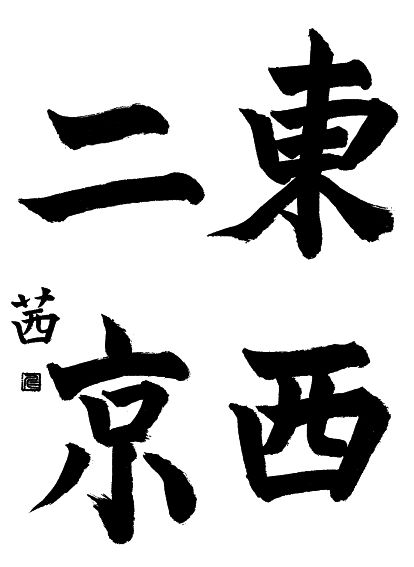 東西
二京
茜